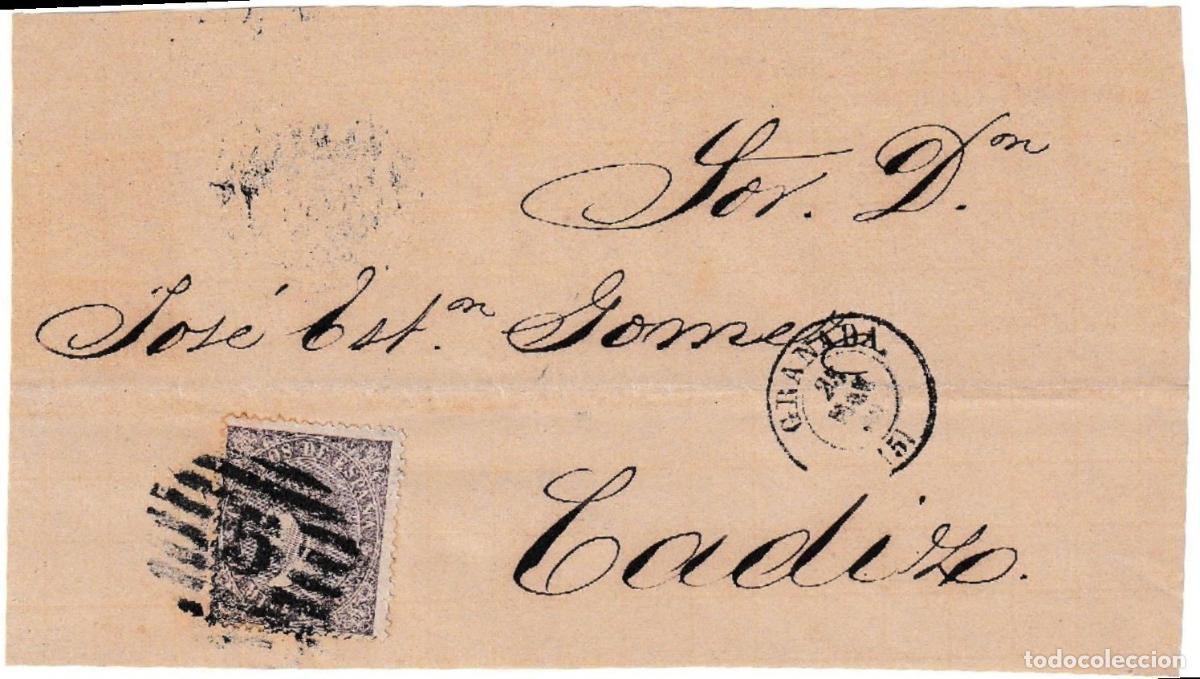 Sor. Dn.
José Estn. Gomez
GRANADA.
(5)
Cadiz.
OS DE ESPAÑA
5
todocoleccion